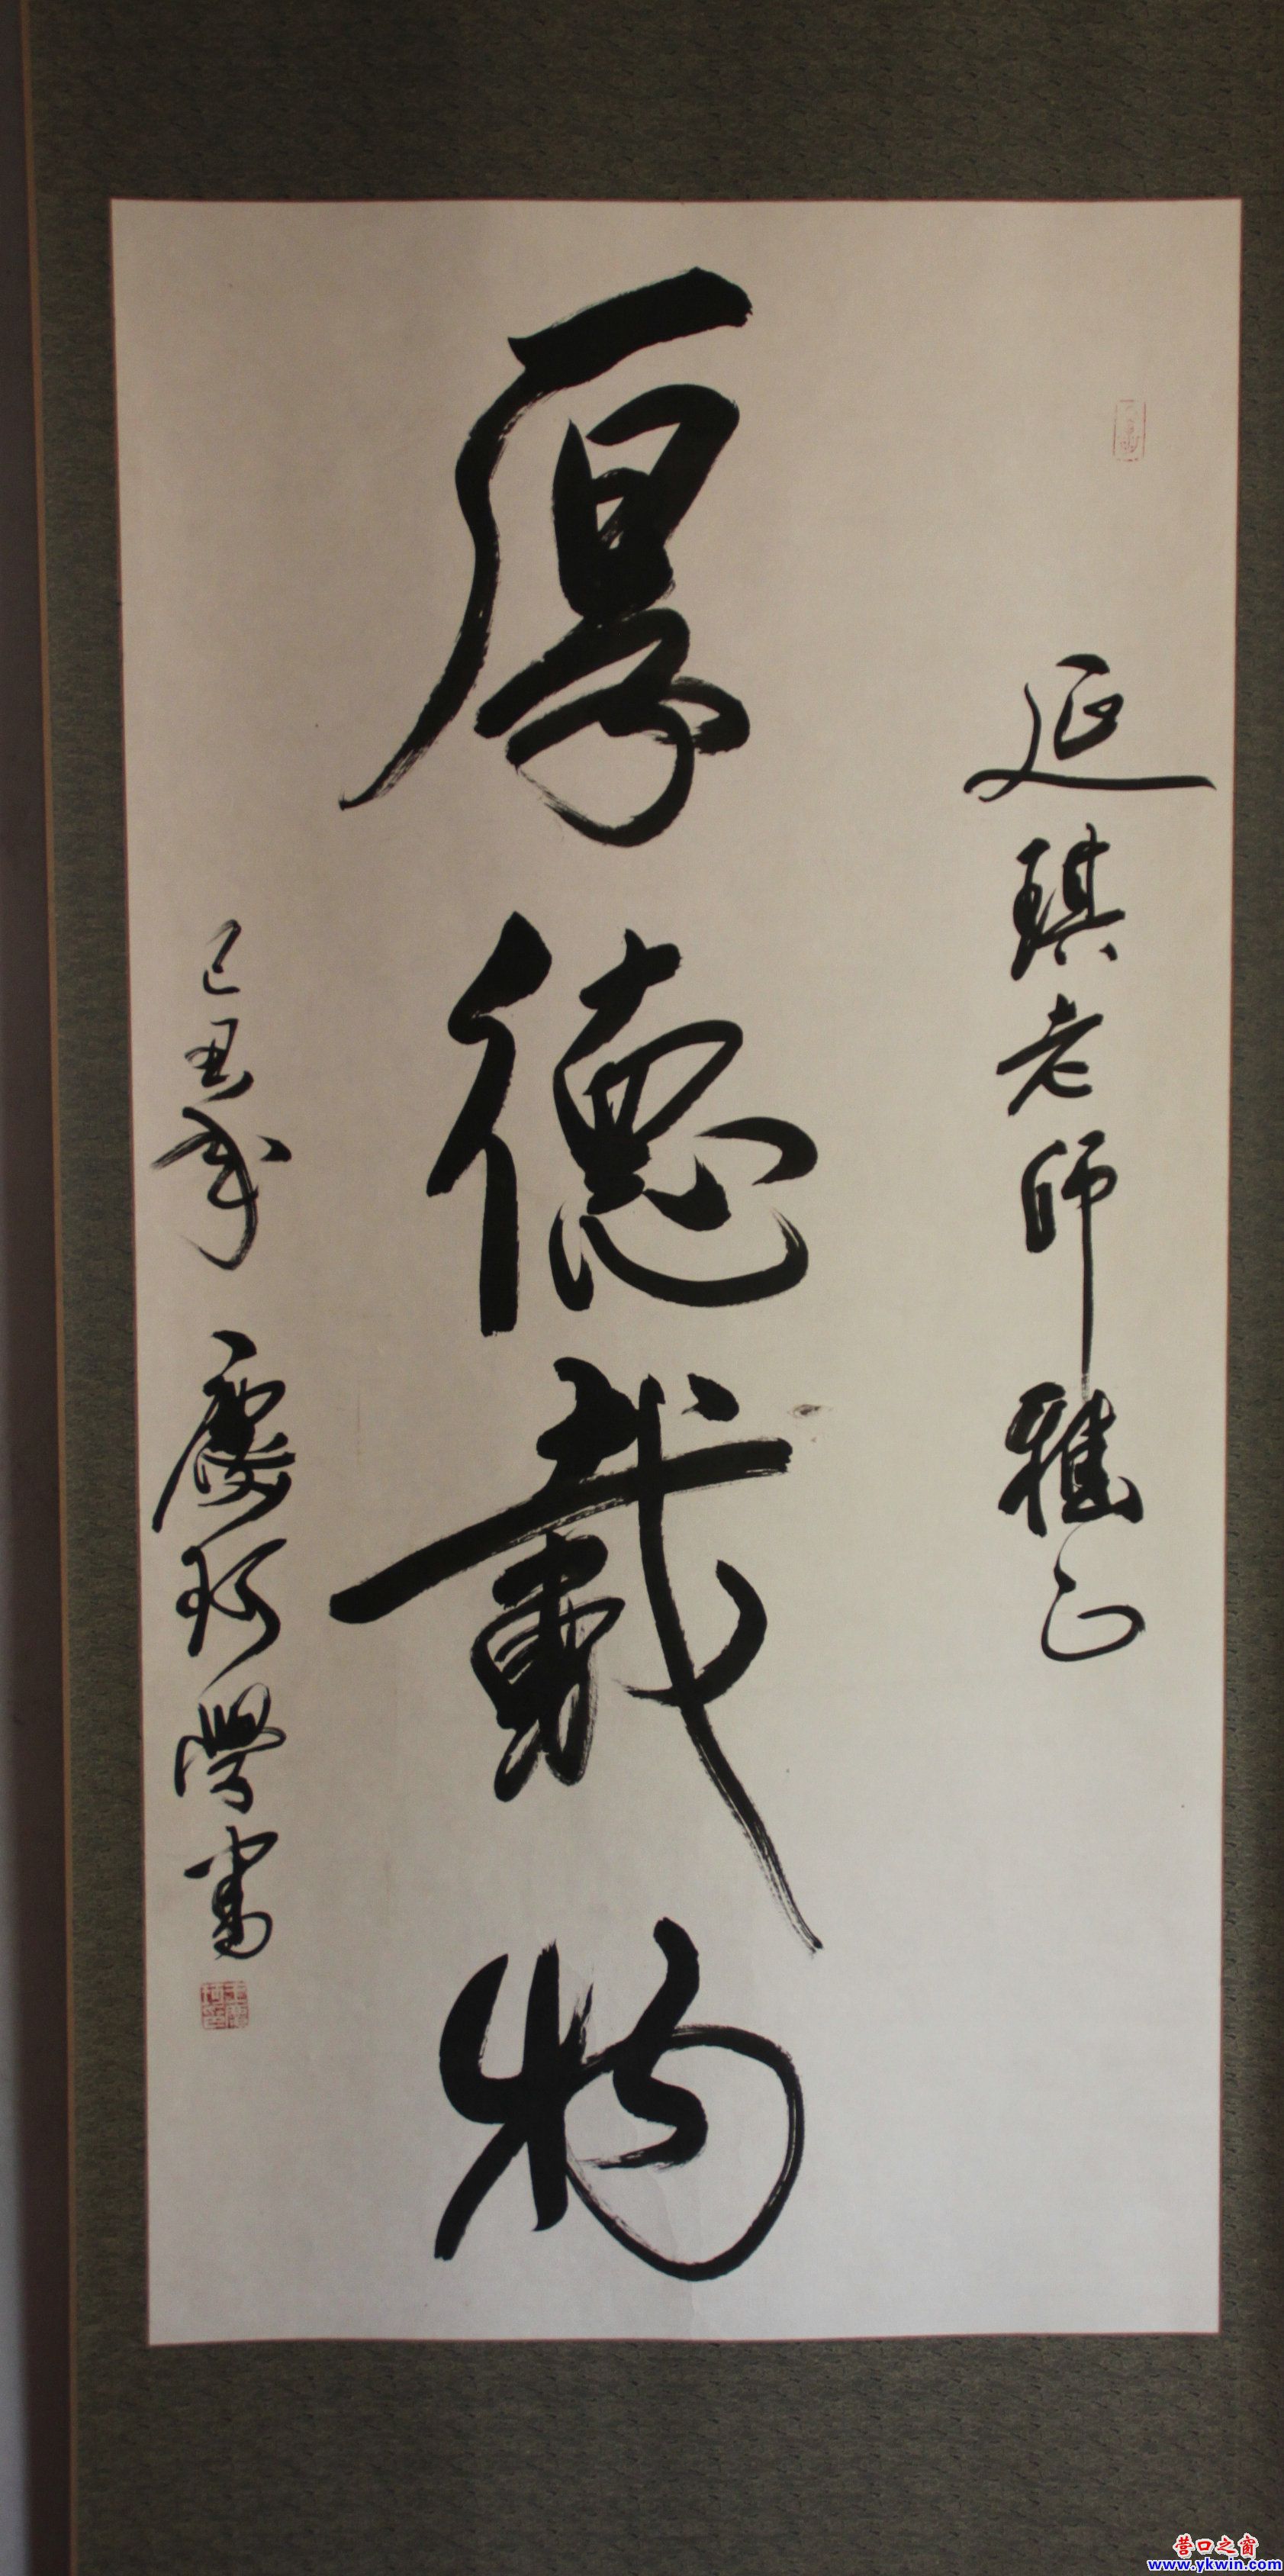 延琪老师雅正
厚德载物
己丑年
学书
营口之窗
www.ykwin.com